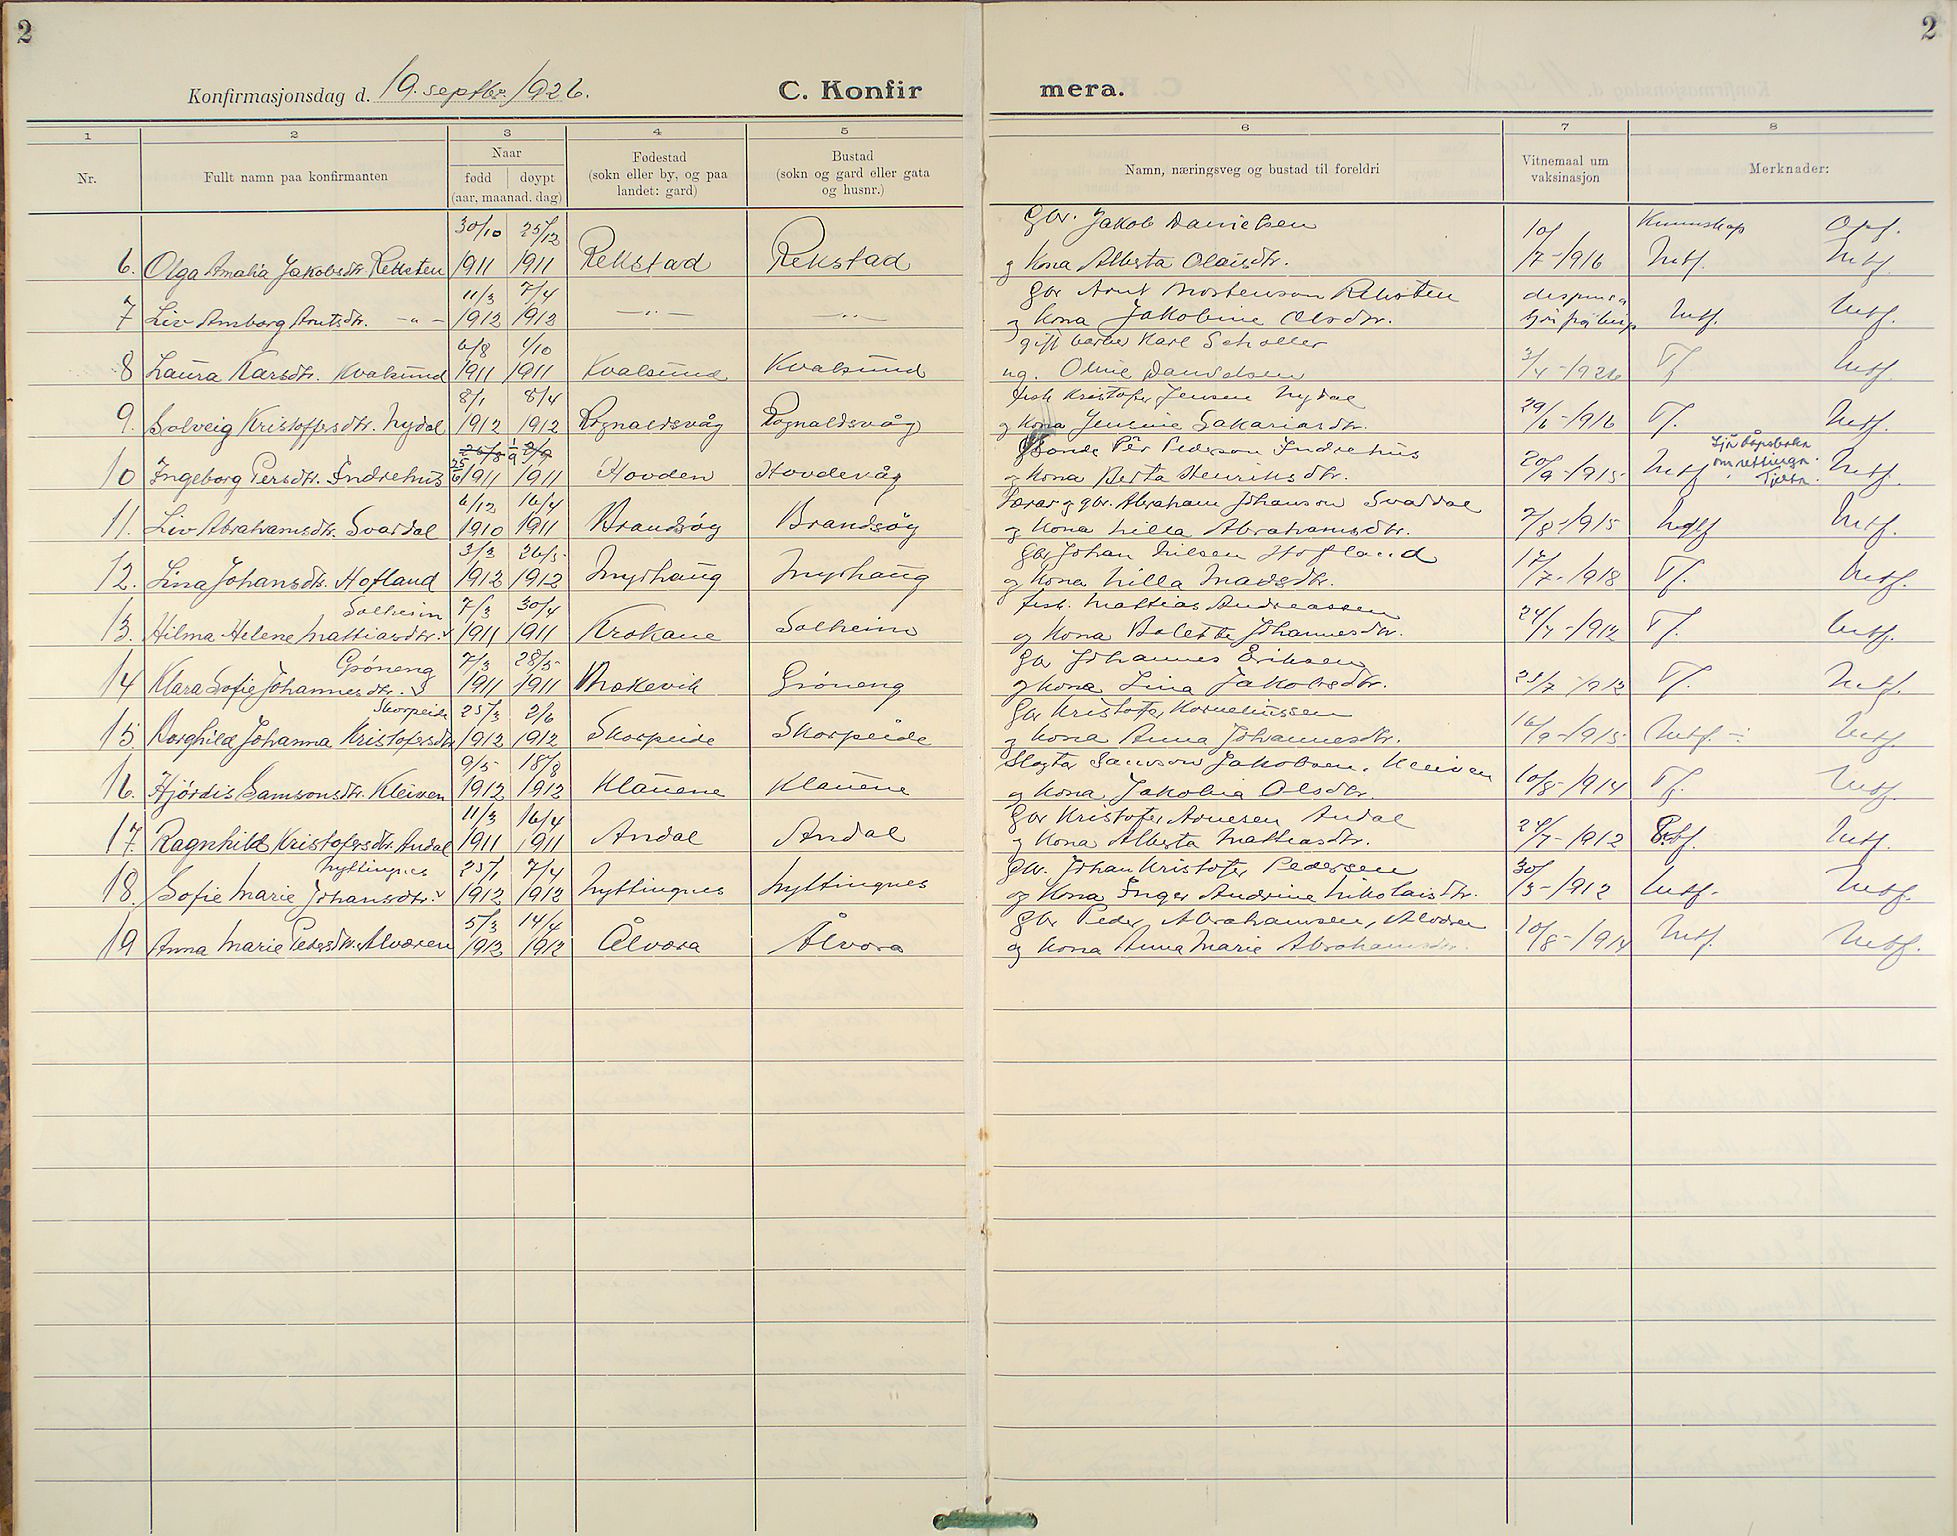 2
Konfirmasjonsdag d. 19. septbr. 1926.
C. Konfir
mera.
2
1 2 3 4 5 6 7 8
Nr.
Fullt namn paa konfirmanten
Naar
fødd døypt
(aar, maanad, dag)
Fødestad
(sokn eller by, og paa
landet: gard)
Bustad
(sokn og gard eller gata
og husnr.)
Namn, næringsveg og bustad til foreldri
Vitnemaal um
vaksinasjon
Merknader:
30/10 25/12 Gbr. Jakob Danielsen 10/ Kunnskap Oppf.
6. Olga Amalia Jakobsdtr. Reksten 1911 1911 Rekstad Rekstad og kona Alberta Olaisdtr. /7-1916 Mtf. Mtf.
11/3 7/4 Gbr Arnt Mortenson Reksten
7 Liv Amborg Arntsdtr. -"- 1912 1912 -"- -"- og kona Jakobine Olsdtr. Mtf. Mtf.
6/8 1/10 gift barber Karl Scholler
8 Laura Karsdtr. Kvalsund 1911 1911 Kvalsund Kvalsund ug. Oline Danielsen 3/4-1926 Tf Mtf.
8/1 8/4 fisk Kristofer Jensen Nydal
9. Solveig Kristoffersdtr. Nydal 1912 1912 Rognaldsvåg Rognaldsvåg og kona Jensine Sakariasdtr. 29/6-1916 Tf. Mtf.
25/8 1/9 2/9 Bonde Per Pederson Indrehus Sjå dåpsboka
10 Ingeborg Persdtr. Indrehus 25/6 1911 1911 Hovden Hovdevåg og kona Berta Henriksdtr. 20/9-1915 Mtf om rettinga. Mtf.
6/12 16/4 Lærar og gbr. Abraham Johanson Svardal
11. Liv Abrahamsdtr. Svardal 1910 1911 Brandsøy Brandsøy og kona Nilla Abrahamsdtr. 7/8-1915 Mtf Mtf.
3/3 26/5 Gbr Johan Nilsen Hofland
12. Lina Johansdtr. Hofland 1912 1912 Myrhaug Myrhaug og kona Nilla Madsdtr. 17/7-1918 Tf. Mtf.
Solheim 7/3 30/4 fisk. Mattias Andreassen
13. Hilma Helene Mattiasdtr. 1911 1911 Krokane Solheim og kona Bolette Johannesdtr. 24/7-1912 Tf. Mtf.
Grøneng 7/3 28/5 Gbr Johannes Eriksen
14 Klara Sofie Johannesdtr. 1911 1911 Grøneng og kona Lina Jakobsdtr. 23/7-1912 Tf. Mtf.
Skorpeide 25/3 2/6 Gbr Kristofer Korneliussen
15. Borghild Johanna Kristofersdtr 1912 1912 Skorpeide Skorpeide og kona Anna Johannesdtr. 16/9-1915 Mtf - Mtf.
9/5 18/8 Slagtar Samson Jakobsen, Kleiven
16. Hjørdis Samsonsdtr. Kleiven 1912 1912 Klavene Klavene og kona Jakobia Olsdtr. 10/8-1914 Tf. Mtf.
11/3 16/4 Gbr Kristofer Arnesen Andal
17. Ragnhild Kristofersdtr. Andal 1911 1911 Andal Andal og kona Alberta Mattiasdtr. 24/7-1912 Mtf.
Nyttingnes 25/1 7/4 Gbr. Johan Kristofer Pedersen 30/
18. Sofie Marie Johansdtr. 1912 1912 Nyttingnes Nyttingnes og kona Inger Andrine Nikolaisdtr. /3-1912 Mtf. Mtf.
5/3 14/4 Gbr Peder Abrahamsen, Alvoren
19 Anna Marie Pedersdtr. Alvoren 1912 1912 Ålvora Ålvora og kona Anna Marie Abrahamsdtr. 10/8-1914 Mtf. Mtf.